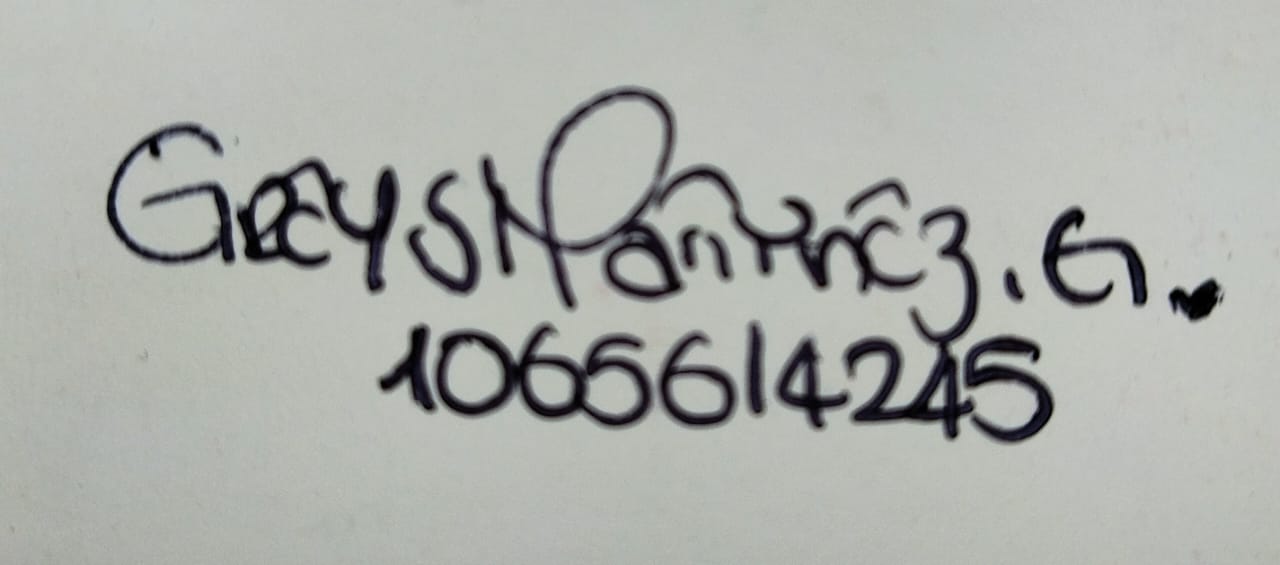 Greys Martinez. G.
1065614245